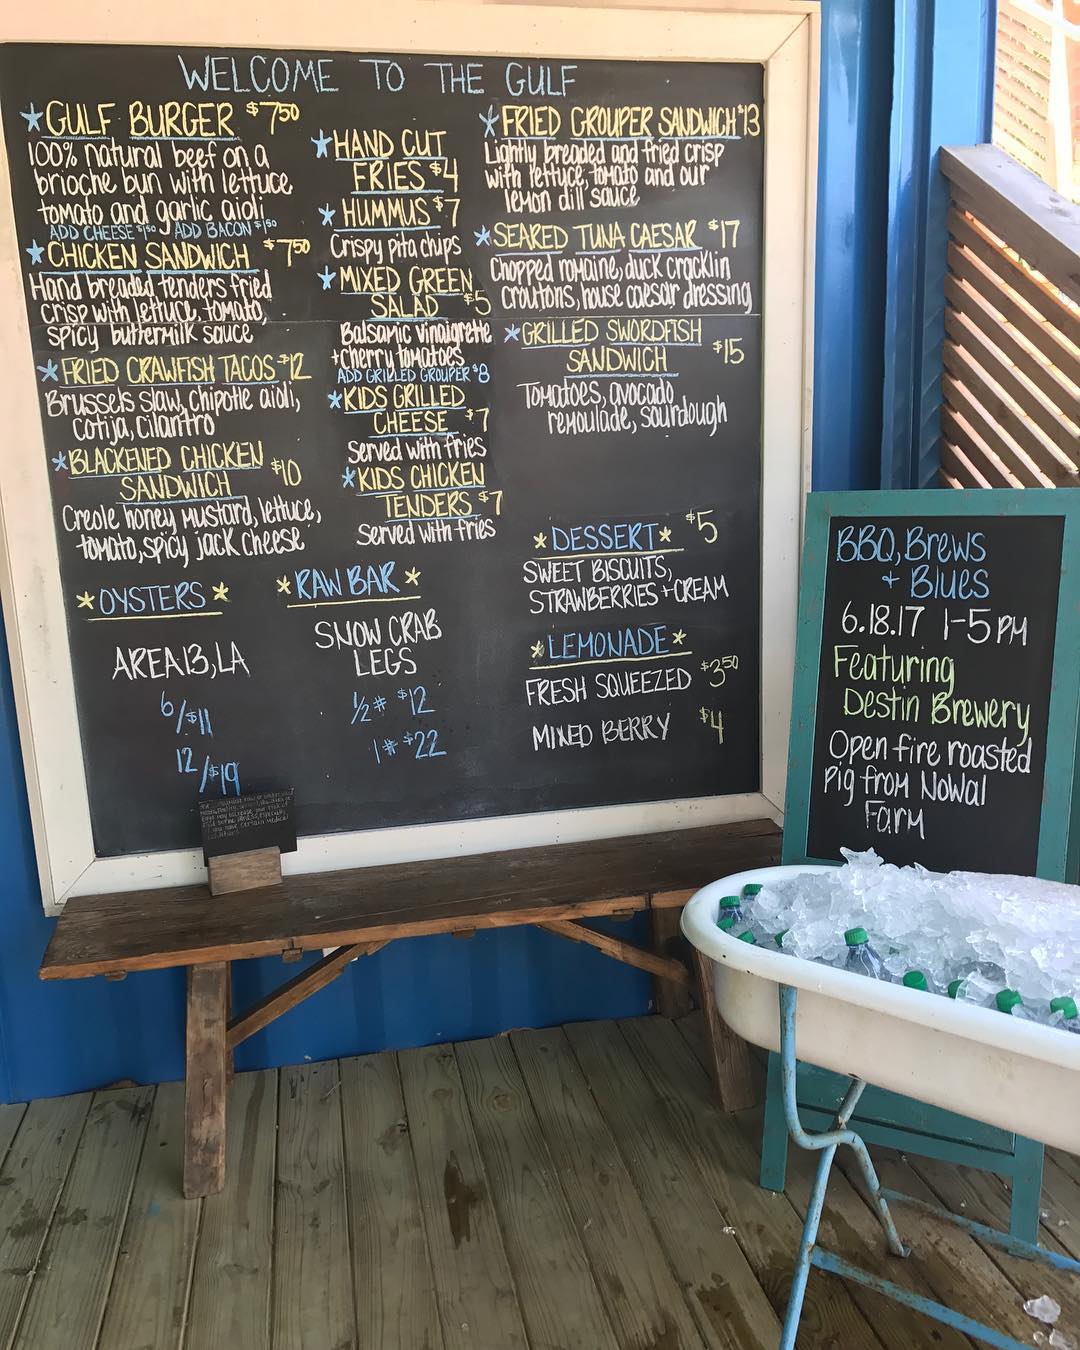 WELCOME TO THE GULF
GULF BURGER $7⁵⁰
100% natural beef on a
brioche bun with lettuce
tomato and garlic aioli
ADD CHEESE $1⁵⁰ ADD BACON $1⁵⁰
CHICKEN SANDWICH $7⁵⁰
Hand breaded tenders fried
crisp with lettuce, tomato,
spicy buttermilk sauce
FRIED CRAWFISH TACOS $12
Brussels slaw, chipotle aioli,
cotija, cilantro
BLACKENED CHICKEN
SANDWICH $10
Creole honey mustard, lettuce,
tomato, spicy jack cheese
*OYSTERS*
AREA 13, LA
6/$11
12/$19
HAND CUT
FRIES $4
HUMMUS $7
Crispy pita chips
MIXED GREEN
SALAD $5
Balsamic vinaigrette
+ cherry tomatoes
ADD GRILLED GROUPER $8
KIDS GRILLED
CHEESE $7
Served with fries
KIDS CHICKEN
TENDERS $7
Served with fries
*RAW BAR*
SNOW CRAB
LEGS
1/2# $12
1# $22
FRIED GROUPER SANDWICH $13
Lightly breaded and fried crisp
with lettuce, tomato and our
lemon dill sauce
SEARED TUNA CAESAR $17
Chopped romaine, duck cracklin
croutons, house caesar dressing
GRILLED SWORDFISH
SANDWICH $15
Tomatoes, avocado
remoulade, sourdough
*DESSERT* $5
SWEET BISCUITS,
STRAWBERRIES + CREAM
*LEMONADE*
FRESH SQUEEZED $3⁵⁰
MIXED BERRY $4
BBQ, Brews
+ Blues
6.18.17 1-5 PM
Featuring
Destin Brewery
Open fire roasted
pig from NoWal
Farm